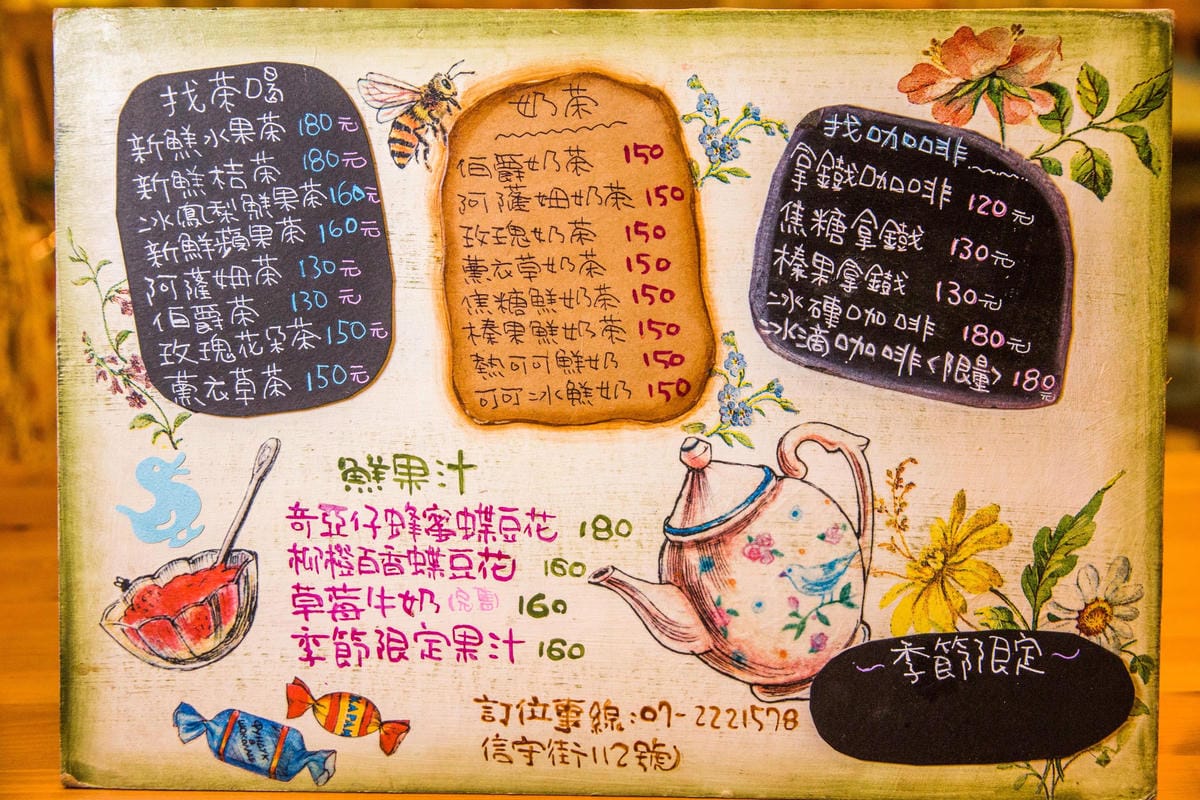 找茶喝
新鮮水果茶 180元
新鮮桔茶 180元
冰鳳梨鮮果茶 160元
新鮮蘋果茶 160元
阿薩姆茶 130元
伯爵茶 130元
玫瑰花朵茶 150元
薰衣草茶 150元
奶茶
伯爵奶茶 150
阿薩姆奶茶 150
玫瑰奶茶 150
薰衣草奶茶 150
焦糖鮮奶茶 150
榛果鮮奶茶 150
熱可可鮮奶 150
可可冰鮮奶 150
找咖啡
拿鐵咖啡 120元
焦糖拿鐵 130元
榛果拿鐵 130元
冰磚咖啡 180元
冰滴咖啡<限量> 180元
鮮果汁
奇亞仔蜂蜜蝶豆花 180
柳橙百香蝶豆花 160
草莓牛奶 160
季節限定果汁 160
~季節限定~
訂位專線:07-2221578
信守街112號